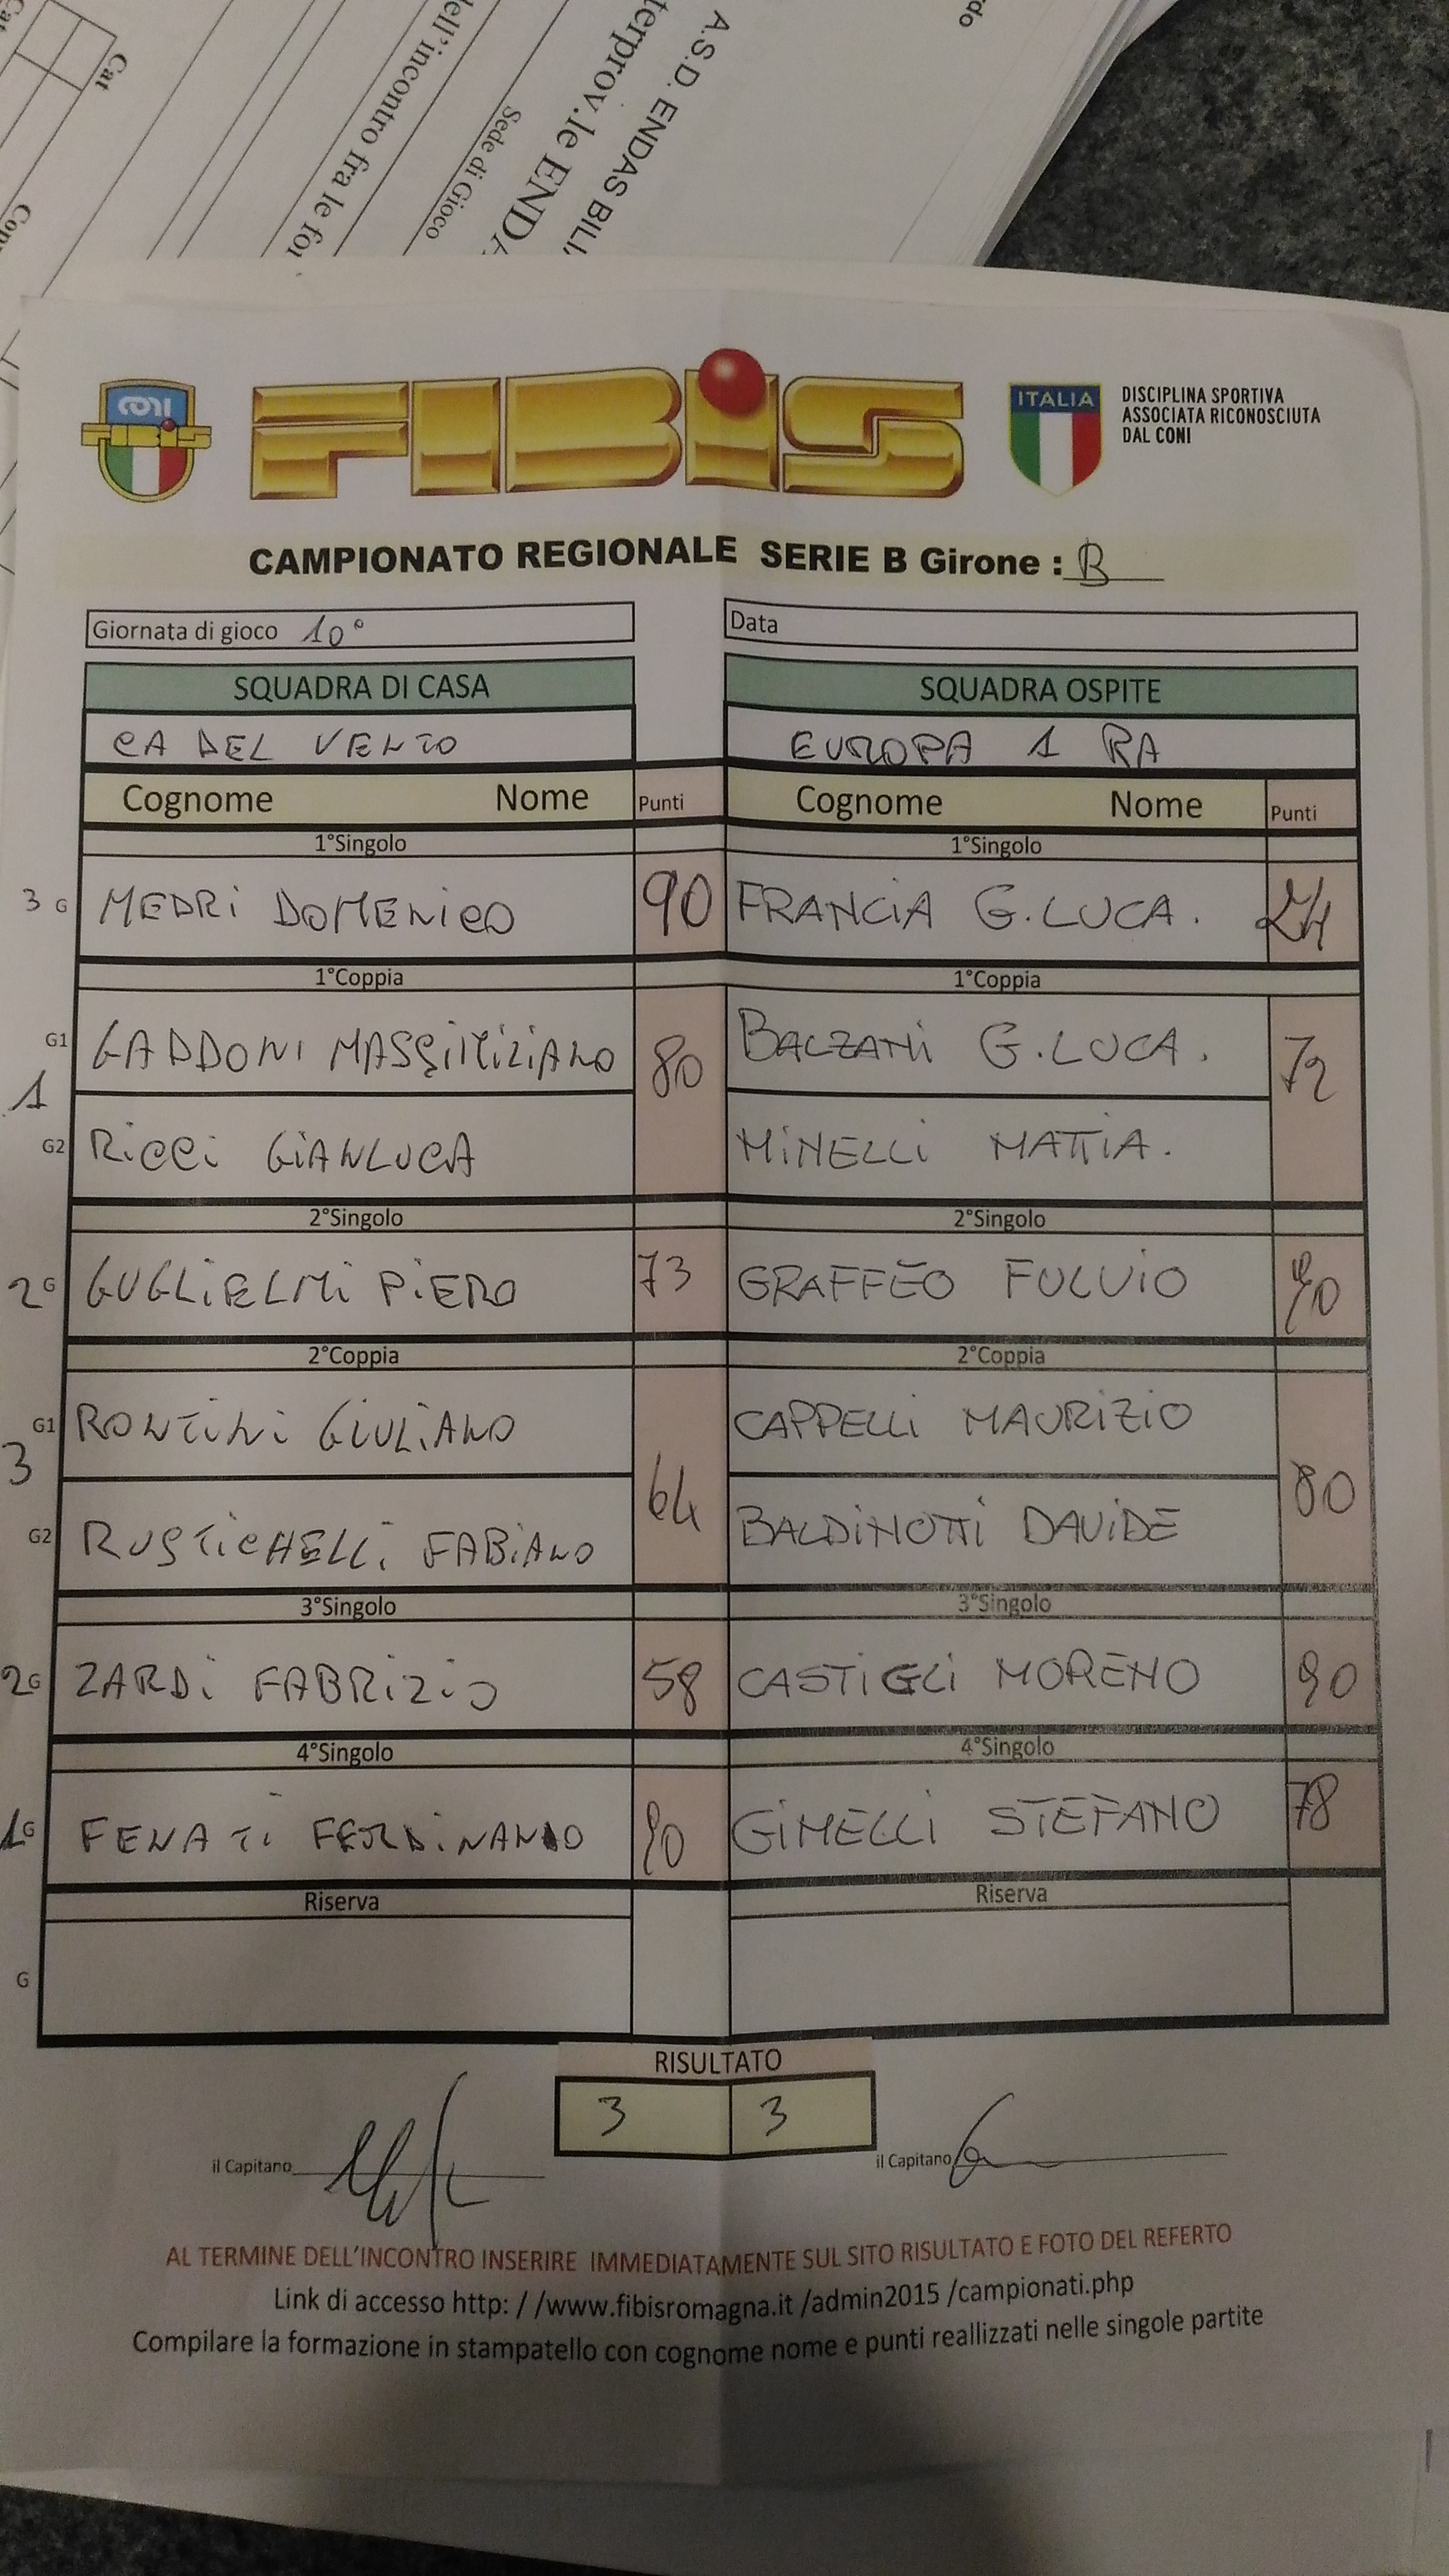 Cat
dell'incontro fra le for
Sede di Gioco
terprov.le ENDA
A.S.D. ENDAS BILI
rdo
CONI
FIBiS
ITALIA
DISCIPLINA SPORTIVA
ASSOCIATA RICONOSCIUTA
DAL CONI
CAMPIONATO REGIONALE SERIE B Girone : B
Giornata di gioco 10°
Data
SQUADRA DI CASA
SQUADRA OSPITE
CA DEL VENTO
EUROPA 1 RA
Cognome Nome Punti
Cognome Nome Punti
1°Singolo
1°Singolo
3 G MEDRI DOMENICO 90
FRANCIA G.LUCA. 24
1°Coppia
1°Coppia
G1 GADDONI MASSIMILIANO
80
BALZANI G.LUCA.
72
1
G2 RICCI GIANLUCA
MINELLI MATTIA.
2°Singolo
2°Singolo
2 G GUGLIELMI PIERO 73
GRAFFEO FULVIO 90
2°Coppia
2°Coppia
G1 RONTINI GIULIANO
CAPPELLI MAURIZIO
3
64
80
G2 RUSTICHELLI FABIANO
BALDINOTTI DAVIDE
3°Singolo
3°Singolo
2 G ZARDI FABRIZIO 58
CASTIGLI MORENO 90
4°Singolo
4°Singolo
1 G FENATI FERDINANDO 90
GIMELLI STEFANO 78
Riserva
Riserva
G
RISULTATO
3 3
il Capitano
il Capitano
AL TERMINE DELL'INCONTRO INSERIRE IMMEDIATAMENTE SUL SITO RISULTATO E FOTO DEL REFERTO
Link di accesso http: / /www.fibisromagna.it /admin2015 /campionati.php
Compilare la formazione in stampatello con cognome nome e punti reallizzati nelle singole partite